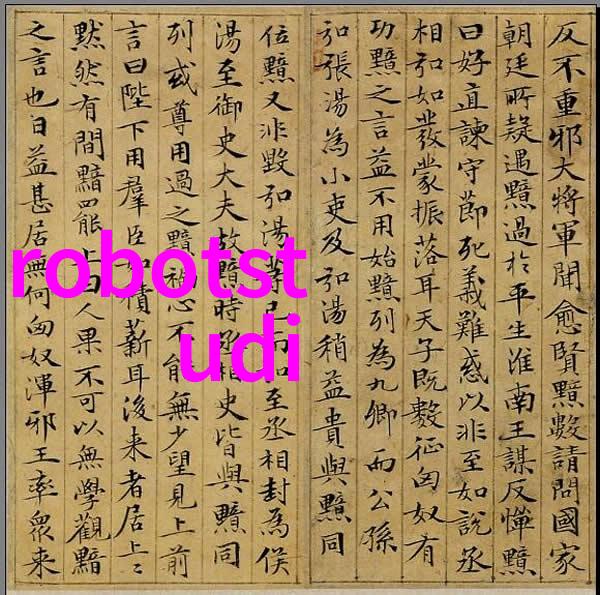 反不重邪大將軍聞愈賢黯數請問國家
朝廷所疑遇黯過於平生淮南王謀反憚黯
曰好直諫守節死義難惑以非至如說丞
相弘如發蒙振落耳天子既數征匈奴有
功黯之言益不用始黯列為九卿而公孫
弘張湯為小吏及弘湯稍益貴與黯同
位黯又非毀弘湯等已而弘至丞相封為侯
湯至御史大夫故黯時丞相史皆與黯同
列或尊用過之黯褊心不能無少望見上前
言曰陛下用羣臣如積薪耳後来者居上〻
黙然有間黯罷上曰人果不可以無學觀黯
之言也日益甚居無何匈奴渾邪王率衆来
robotst
udi